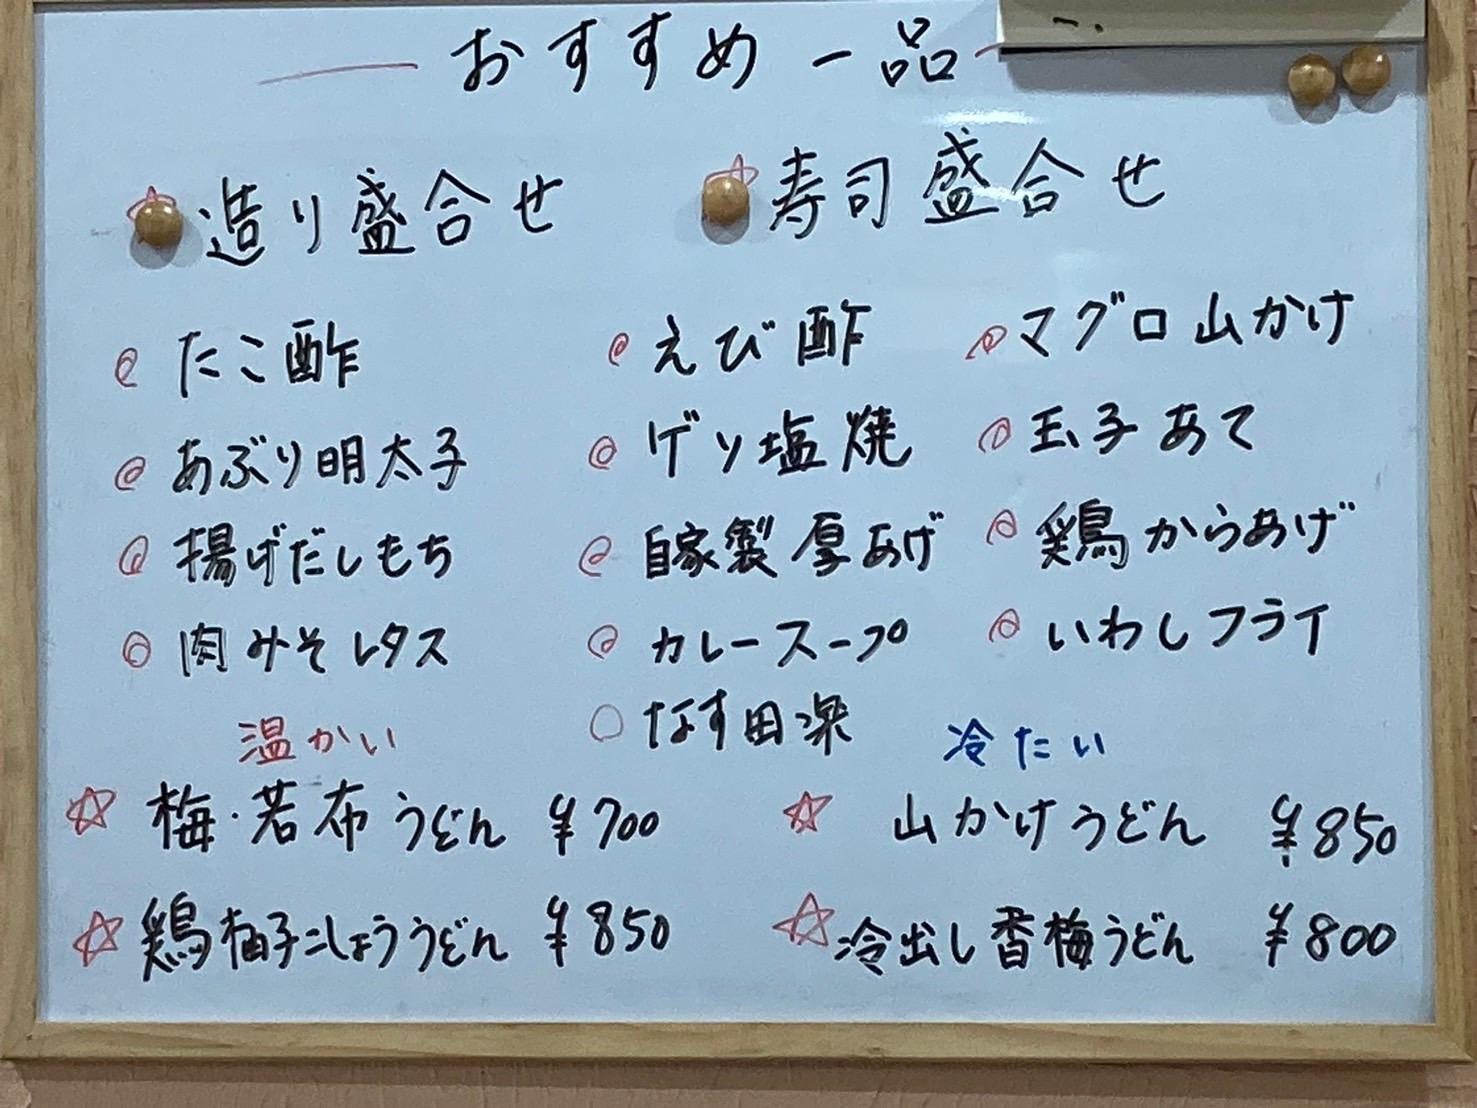 おすすめ一品
☆造り盛合せ ☆寿司盛合せ
◎たこ酢 ◎えび酢 ◎マグロ山かけ
◎あぶり明太子 ◎ゲソ塩焼 ◎玉子あて
◎揚げだしもち ◎自家製厚あげ ◎鶏からあげ
◎肉みそレタス ◎カレースープ ◎いわしフライ
○なす田楽
温かい 冷たい
☆梅・若布うどん ¥700 ☆山かけうどん ¥850
☆鶏柚子こしょううどん ¥850 ☆冷出し香梅うどん ¥800